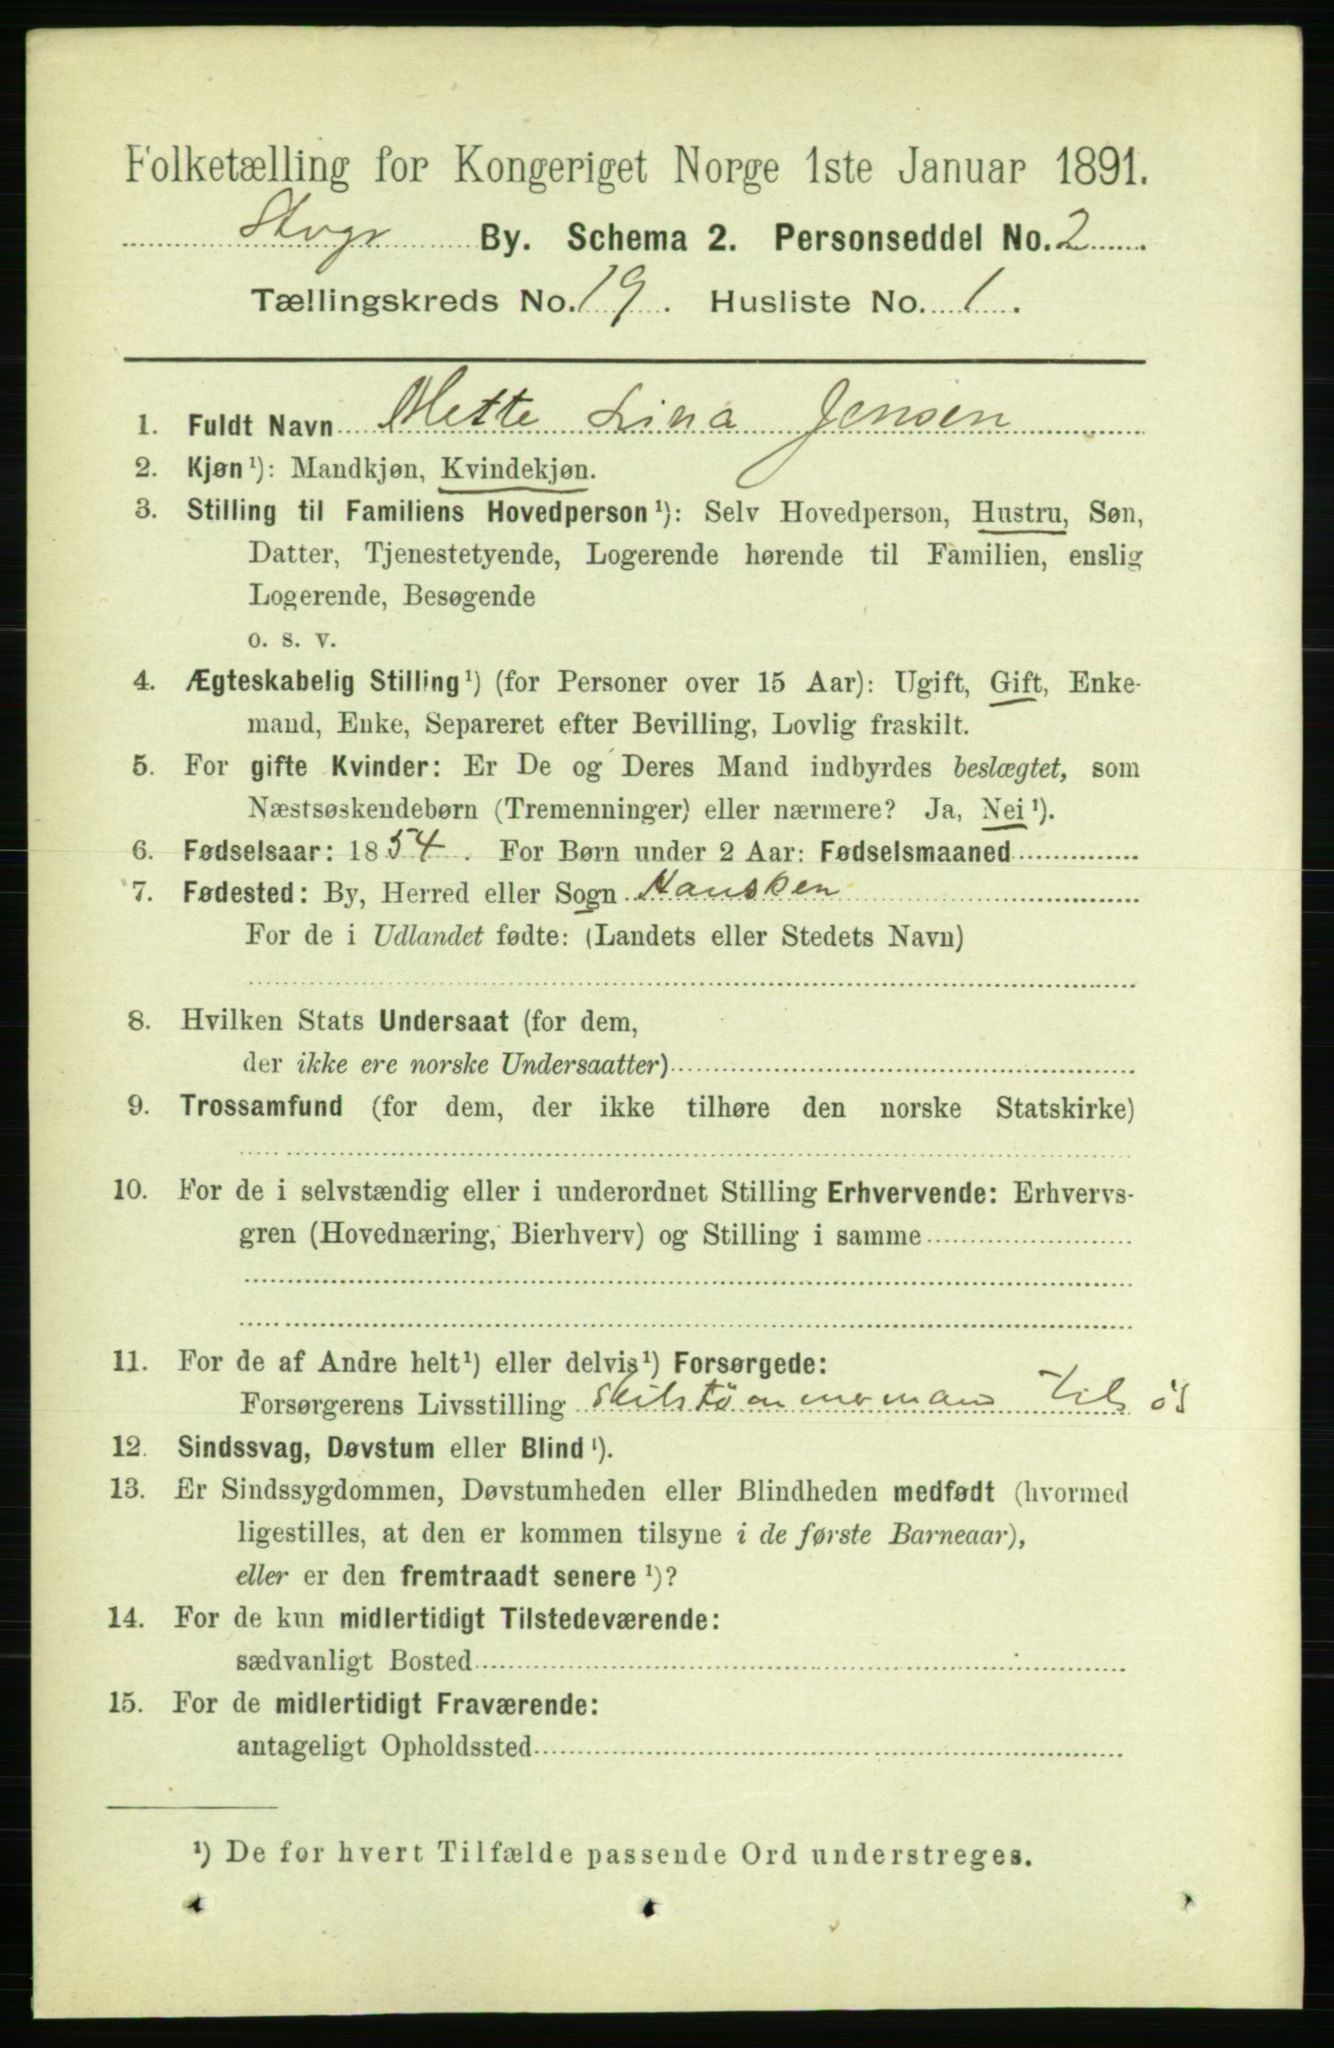 Folketælling for Kongeriget Norge 1ste Januar 1891.
Stvgr By. Schema 2. Personseddel No. 2
Tællingskreds No. 19. Husliste No. 1.
1. Fuldt Navn Mette Lina Jensen
2. Kjøn ¹): Mandkjøn, Kvindekjøn.
3. Stilling til Familiens Hovedperson ¹): Selv Hovedperson, Hustru, Søn,
Datter, Tjenestetyende, Logerende hørende til Familien, enslig
Logerende, Besøgende
o. s. v.
4. Ægteskabelig Stilling ¹) (for Personer over 15 Aar): Ugift, Gift, Enke-
mand, Enke, Separeret efter Bevilling, Lovlig fraskilt.
5. For gifte Kvinder: Er De og Deres Mand indbyrdes beslægtet, som
Næstsøskendebørn (Tremenninger) eller nærmere? Ja, Nei ¹).
6. Fødselsaar: 1854. For Børn under 2 Aar: Fødselsmaaned
7. Fødested: By, Herred eller Sogn Hausken
For de i Udlandet fødte: (Landets eller Stedets Navn)
8. Hvilken Stats Undersaat (for dem,
der ikke ere norske Undersaatter)
9. Trossamfund (for dem, der ikke tilhøre den norske Statskirke)
10. For de i selvstændig eller i underordnet Stilling Erhvervende: Erhvervs-
gren (Hovednæring, Bierhverv) og Stilling i samme
11. For de af Andre helt ¹) eller delvis ¹) Forsørgede:
Forsørgerens Livsstilling til
12. Sindssvag, Døvstum eller Blind ¹).
13. Er Sindssygdommen, Døvstumheden eller Blindheden medfødt (hvormed
ligestilles, at den er kommen tilsyne i de første Barneaar),
eller er den fremtraadt senere ¹)?
14. For de kun midlertidigt Tilstedeværende:
sædvanligt Bosted
15. For de midlertidigt Fraværende:
antageligt Opholdssted
¹) De for hvert Tilfælde passende Ord understreges.